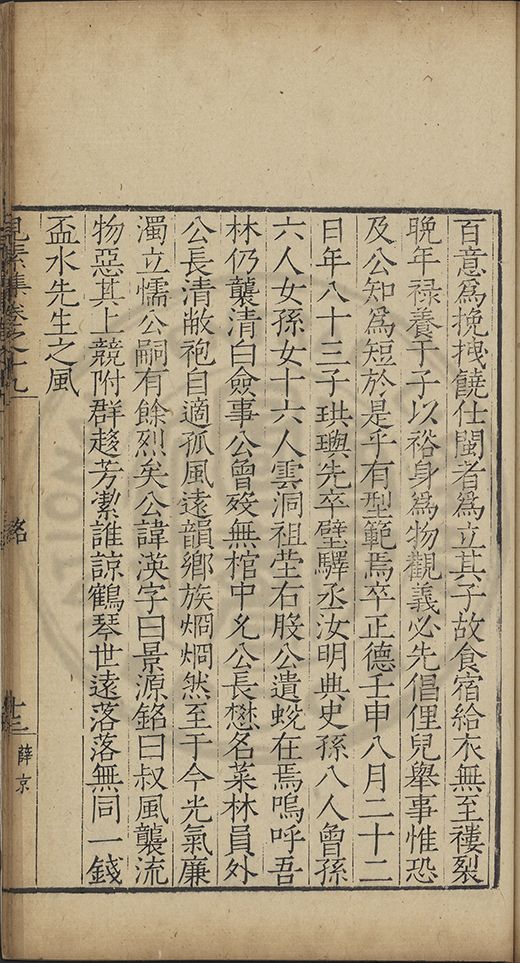 百意為挽拽饒仕閩者為立其子故食宿給衣無至褸裂
晚年禄養于子以裕身為物觀義必先倡俚兒舉事惟恐
及公知為短於是乎有型範焉卒正德壬申八月二十二
日年八十三子珙璵先卒璧驛丞汝明典史孫八人曾孫
六人女孫女十六人雲洞祖塋右股公遺蛻在焉嗚呼吾
林仍襲清白僉事公曾殁無棺中允公長懋名菜林員外
公長清敝袍自適孤風遠韻鄉族烱烱然至于今光氣廉
濁立懦公嗣有餘烈矣公諱渶字曰景源銘曰叔風襲流
物惡其上競附群趍芳潔誰諒鶴琴世遠落落無同一錢
盃水先生之風
見素集卷之十九
銘
十三
薛京